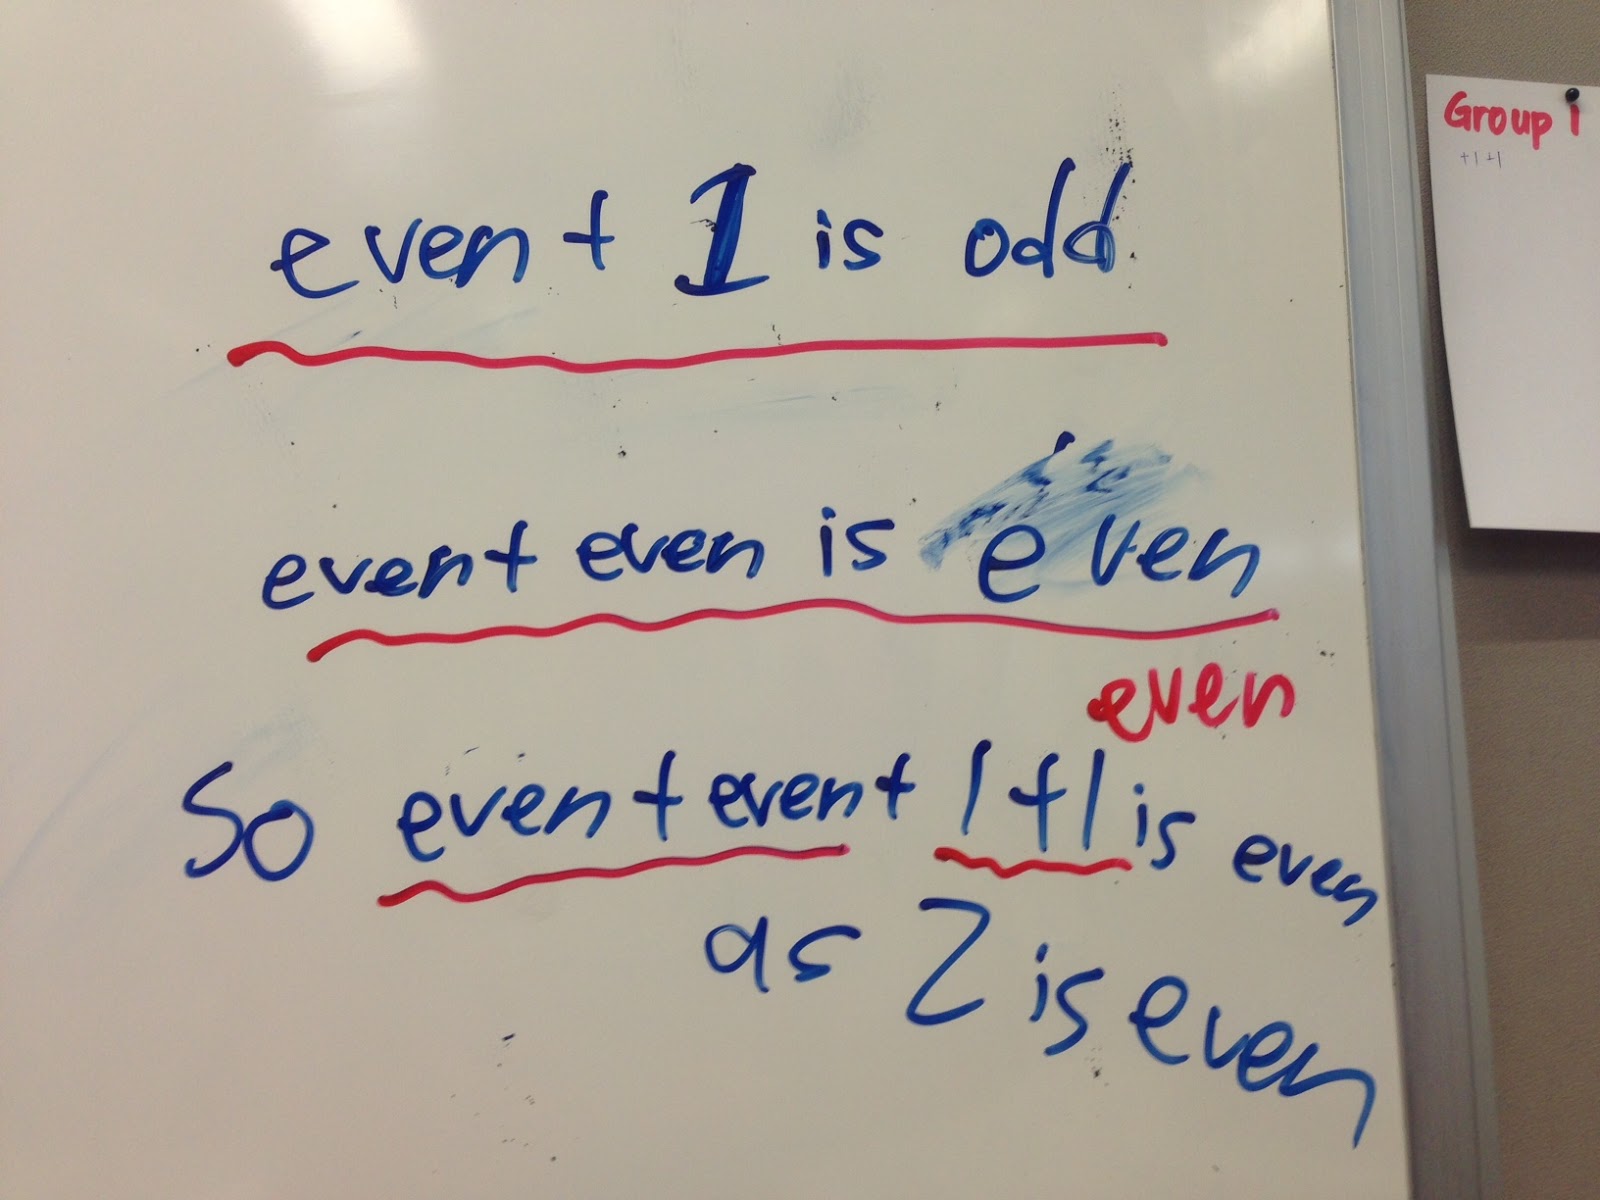 even + 1 is odd
even + even is even
even
So even + even + 1 + 1 is even
as 2 is even
Group 1
+1 +1